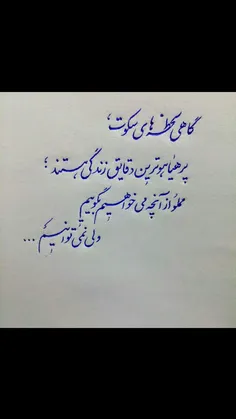 گاهی لحظه های سکوت،
پرهیاهوترین دقایق زندگی هستند؛
مملو از آنچه می خواهیم بگوییم
ولی نمی توانیم ...